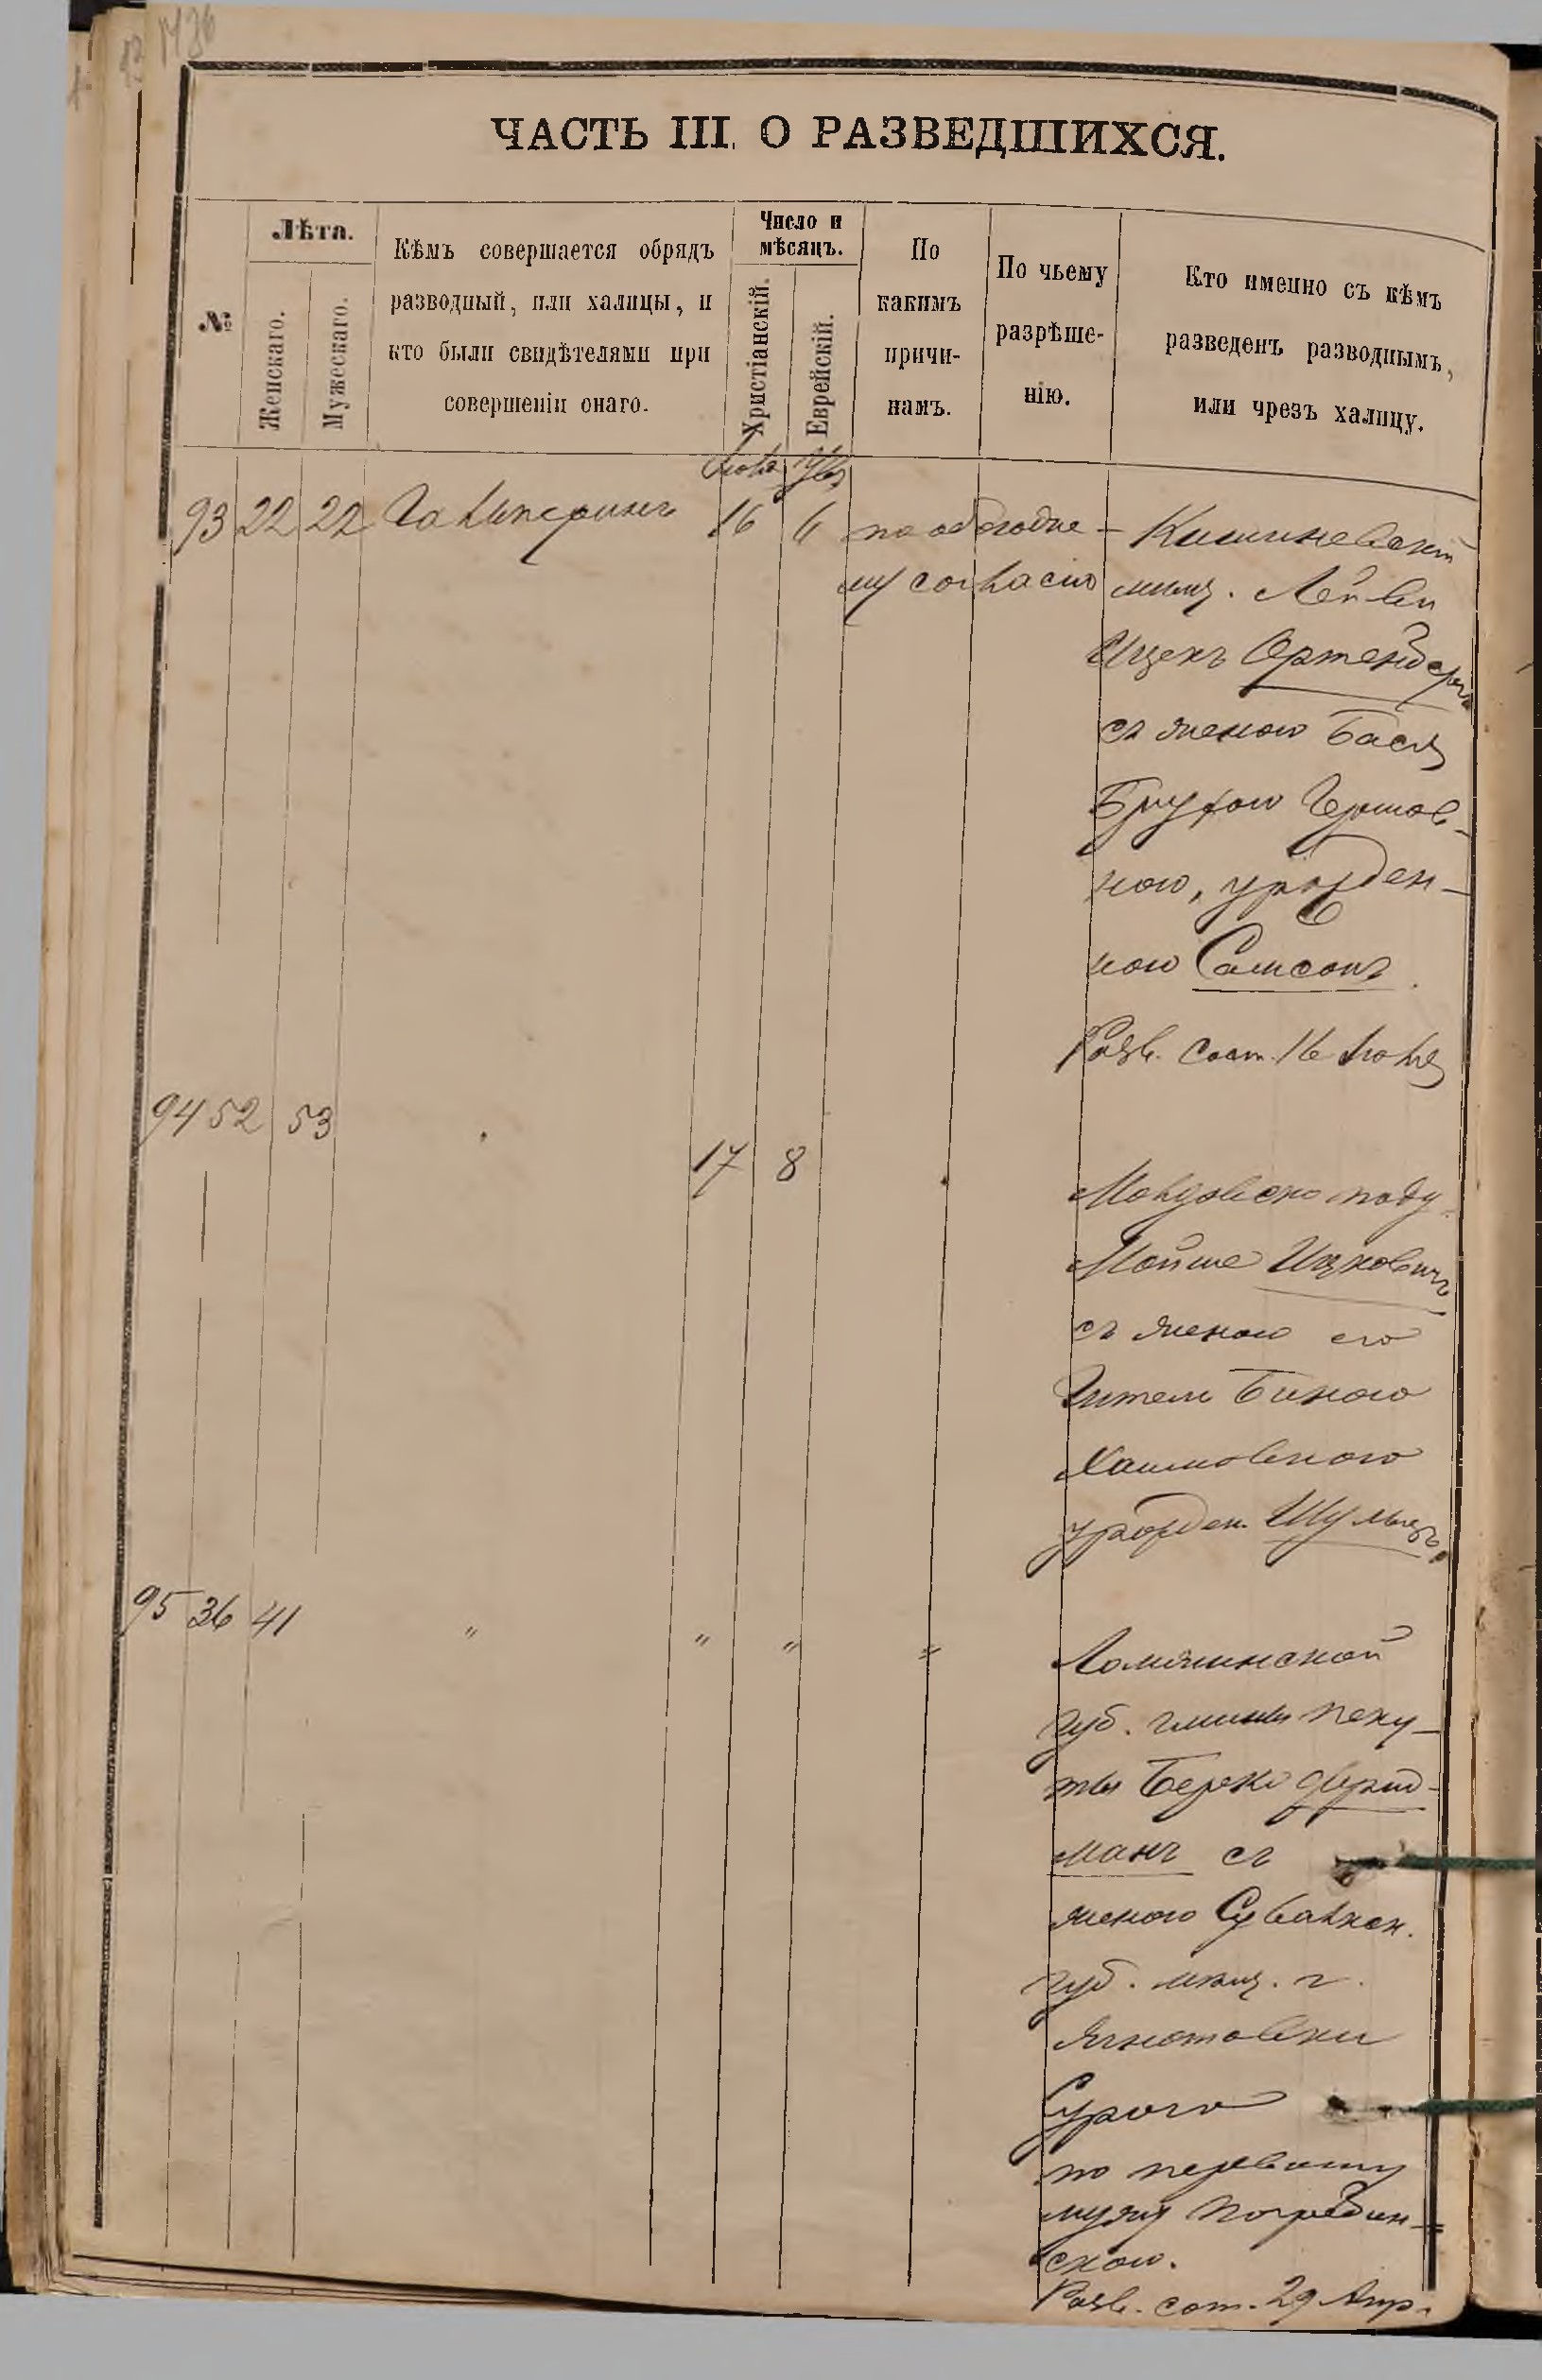 1736
ЧАСТЬ III. О РАЗВЕДШИХСЯ.
№
Лѣта.
Женскаго.
Мужескаго.
Кѣмъ совершается обрядъ
разводный, или халицы, и
кто были свидѣтелями при
совершеніи онаго.
Число и
мѣсяцъ.
Христіанскій.
Еврейскій.
По
какимъ
причи-
намъ.
По чьему
разрѣше-
нію.
Кто именно съ кѣмъ
разведенъ разводнымъ,
или чрезъ халицу.
93 22 22 Гальперинъ 16 по обоюдно-
му согласію
Кишиневскій
мѣщ. Лейви
Ицекъ Ортенбергъ
съ женою Бася
Брухою Гершов-
ною, урожден-
ною Самсонъ.
Разв. сост. 16 Іюля
94 52 53
17 8
Молдавско подд.
Мойше Ицковичъ
съ женою его
Гитель Биною
Хаимовною
урожден. Шульцъ
95 36 41 " " " "
Ломжинской
губ. гмины
Берко Фрид-
манъ съ
женою Сувалкск.
губ. мѣщ. г.
Сурою
по первому
мужу Погребин-
скою.
Разв. сост. 29 Апр.